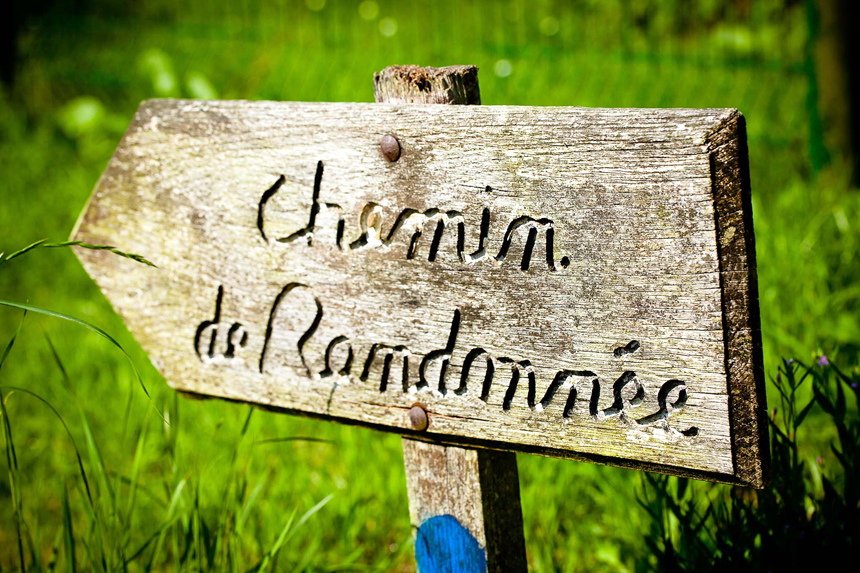 Chemin.
de Randonnée